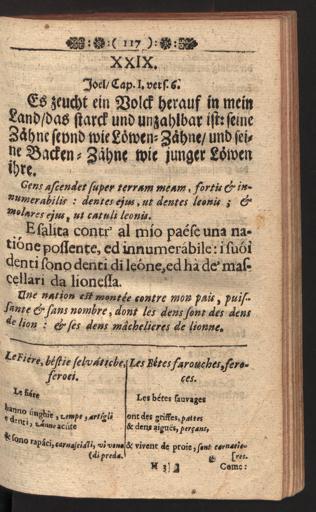 :( 117 ):
XXIX.
Joel/ Cap. I. vers. 6.
Es zeucht ein Volck herauf in mein
Land/das starck und unzahlbar ist: seine
Zähne seynd wie Löwen-Zähne/ und sei-
ne Backen-Zähne wie junger Löwen
ihre.
Gens ascendet super terram meam, fortis & in-
numerabilis : dentes ejus, ut dentes leonis ; &
molares ejus, ut catuli leonis.
E salita contr' al mío paése una na-
tióne possente, ed innumerábile: i suói
denti sono denti di leóne, ed hà de' mas-
cellari da lionessa.
Une nation est montée contre mon pais, puis-
sante & sans nombre, dont les dens sont des dens
de lion : & ses dens mâchelieres de lionne.
Le Fiére, béstie selvátiche, feroci.
Les Bêtes farouches, fero-
ces.
Le fiére
Les bêtes sauvages
hanno únghie, zampe, artígli
ont des griffes, pattes
e denti, zanne acúte
& dens aiguës, perçans,
& sono rapáci, carnasciáli, vivono
(di preda.
& vivent de proie, sont carnacie-
[res.
H 3
Come: